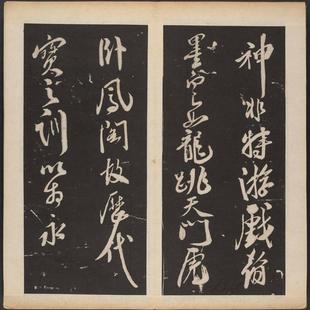 神非特游戲翰
墨而已龍跳天門虎
卧鳳閣故歷代
寶之訓以為永